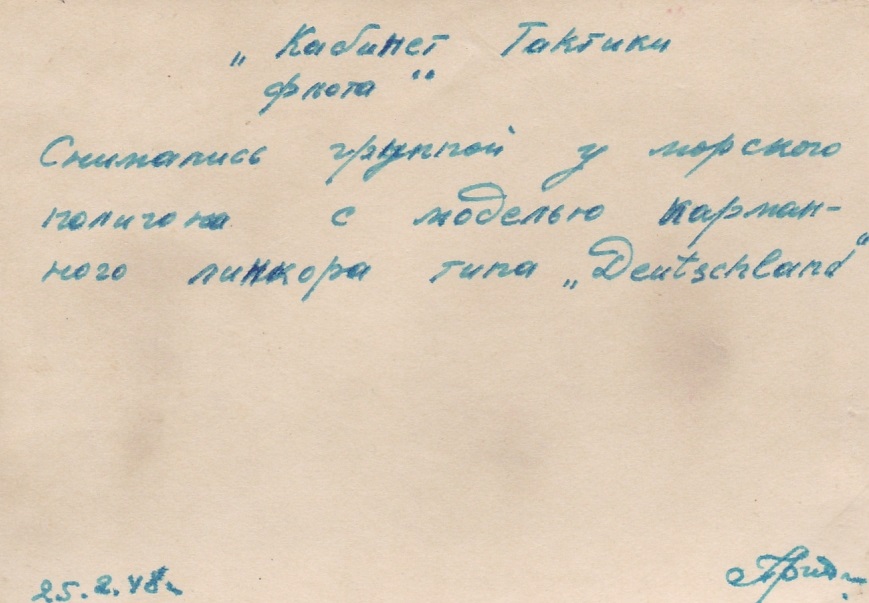 „Кабинет Тактики
флота“
Снимались группой у морского
полигона с моделью карман-
ного линкора типа „Deutschland“
25.2.48г.